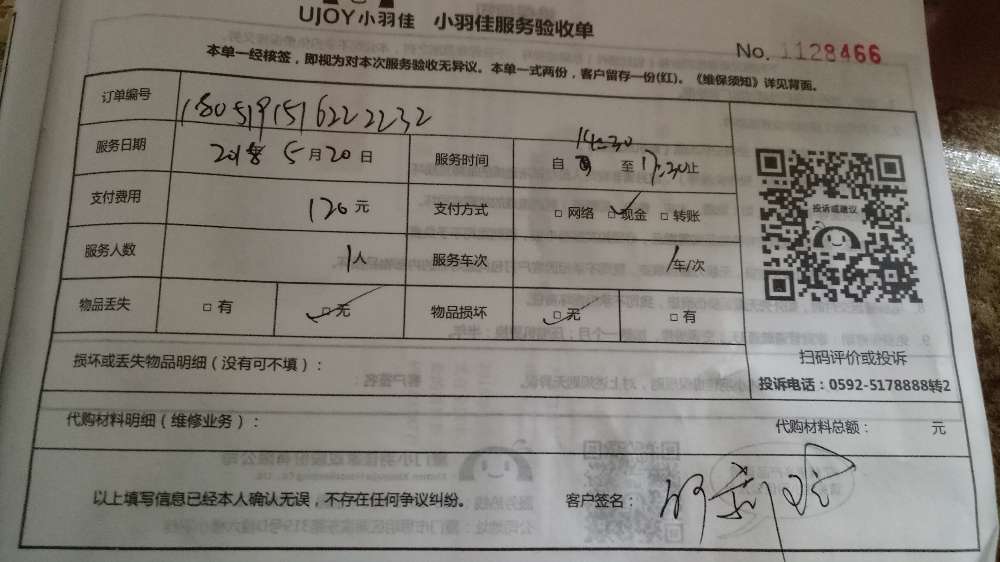 UJOY小羽佳 小羽佳服务验收单
No. 1128466
本单一经接签，即视为对本次服务验收无异议。本单一式两份，客户留存一份(红)。《维保须知》详见背面。
订单编号 180519151622 2232
服务日期 2018年 5月20日 服务时间 自 14:30 至 17:30止
支付费用 120元 支付方式 □网络 □现金 □转账
服务人数 1人 服务车次 1车/次
投诉或建议
物品丢失 □有 □无 物品损坏 □无 □有
损坏或丢失物品明细（没有可不填）：
扫码评价或投诉
投诉电话：0592-5178888转2
代购材料明细（维修业务）： 代购材料总额： 元
以上填写信息已经本人确认无误，不存在任何争议纠纷。 客户签名：